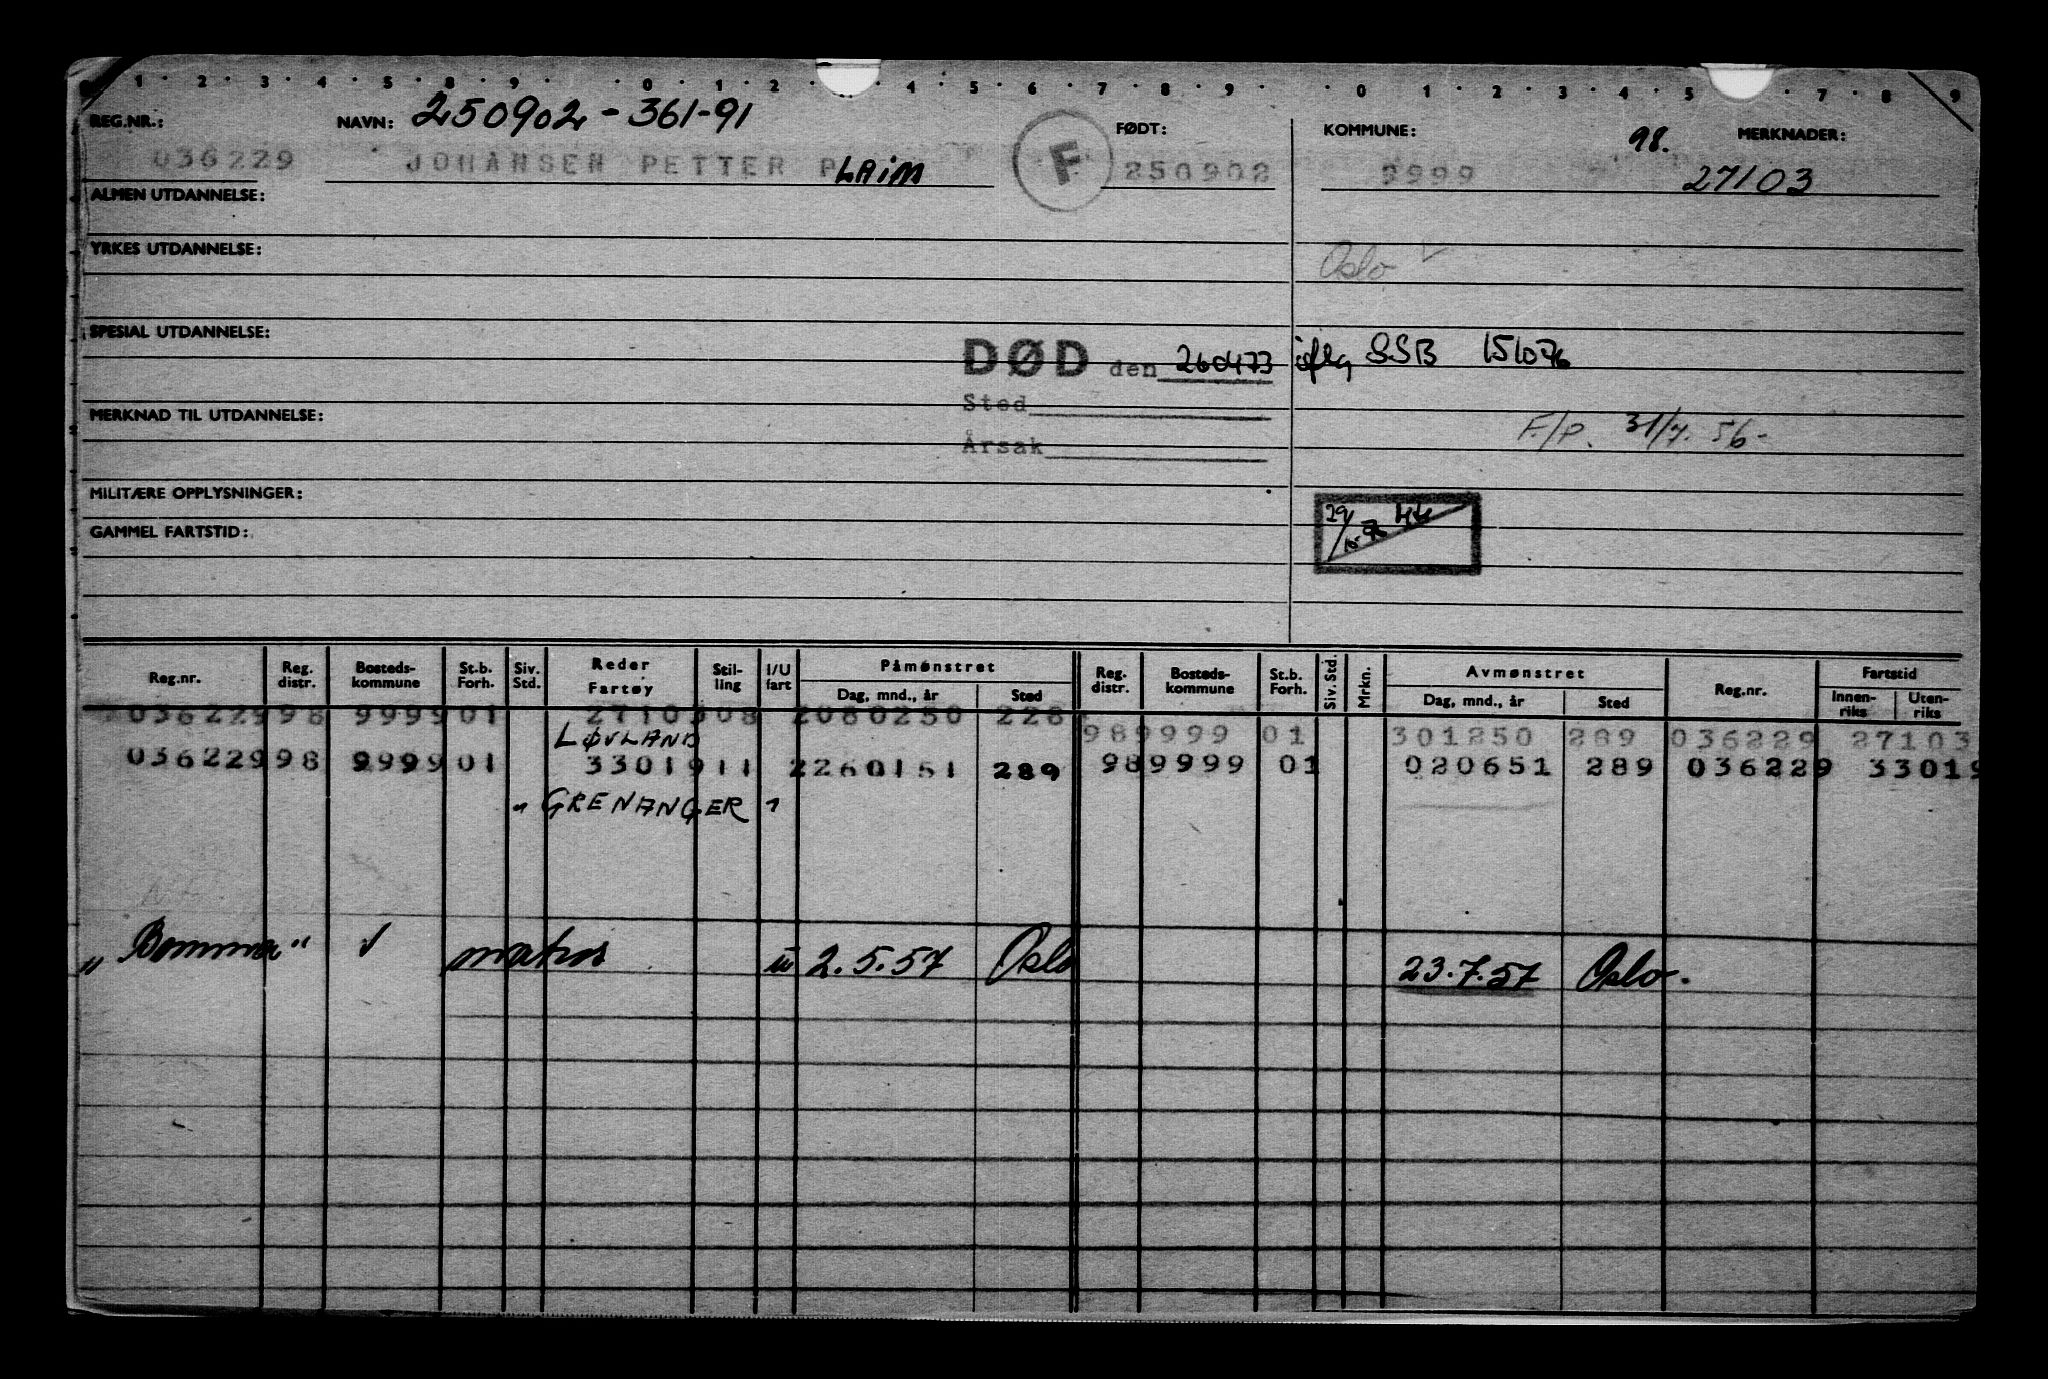 1 · 2 · 3 · 4 · 5 · 8 · 9 · · 0 · 1 · 2 · 4 · 5 · 6 · 7 · 8 · 9 · · 0 · 1 · 2 · 3 · 4 · 5 · 7 · 8 · 9
REG.NR.: NAVN: 250902-361-91 FØDT: KOMMUNE: 98. MERKNADER:
036229 JOHANSEN PETTER PLAIM F 250902 9999 27103
ALMEN UTDANNELSE:
YRKES UTDANNELSE: Oslo
SPESIAL UTDANNELSE:
DØD den 260473 iflg SSB 151076
Sted
MERKNAD TIL UTDANNELSE: F./P. 31/7. 56-
Årsak
MILITÆRE OPPLYSNINGER:
29/10-76
GAMMEL FARTSTID:
Reg.nr. Reg. distr. Bosteds-kommune St.b. Forh. Siv. Std. Reder Fartøy Stil-ling I/U fart Påmønstret Dag, mnd., år Sted Reg. distr. Bosteds-kommune St.b. Forh. Siv. Std. Mrkn. Avmønstret Dag, mnd., år Sted Reg.nr. Fartstid Innen-riks Uten-riks
036229 98 9999 01 27103 08 2 080250 228
LØVLAND 98 9999 01 301250 289 036229 27103
036229 98 9999 01 33019 11 2 260151 289 98 9999 01 020651 289 036229 33019
"GRENANGER"
"Bomma" matros u 2.5.57 Oslo 23.7.57 Oslo.